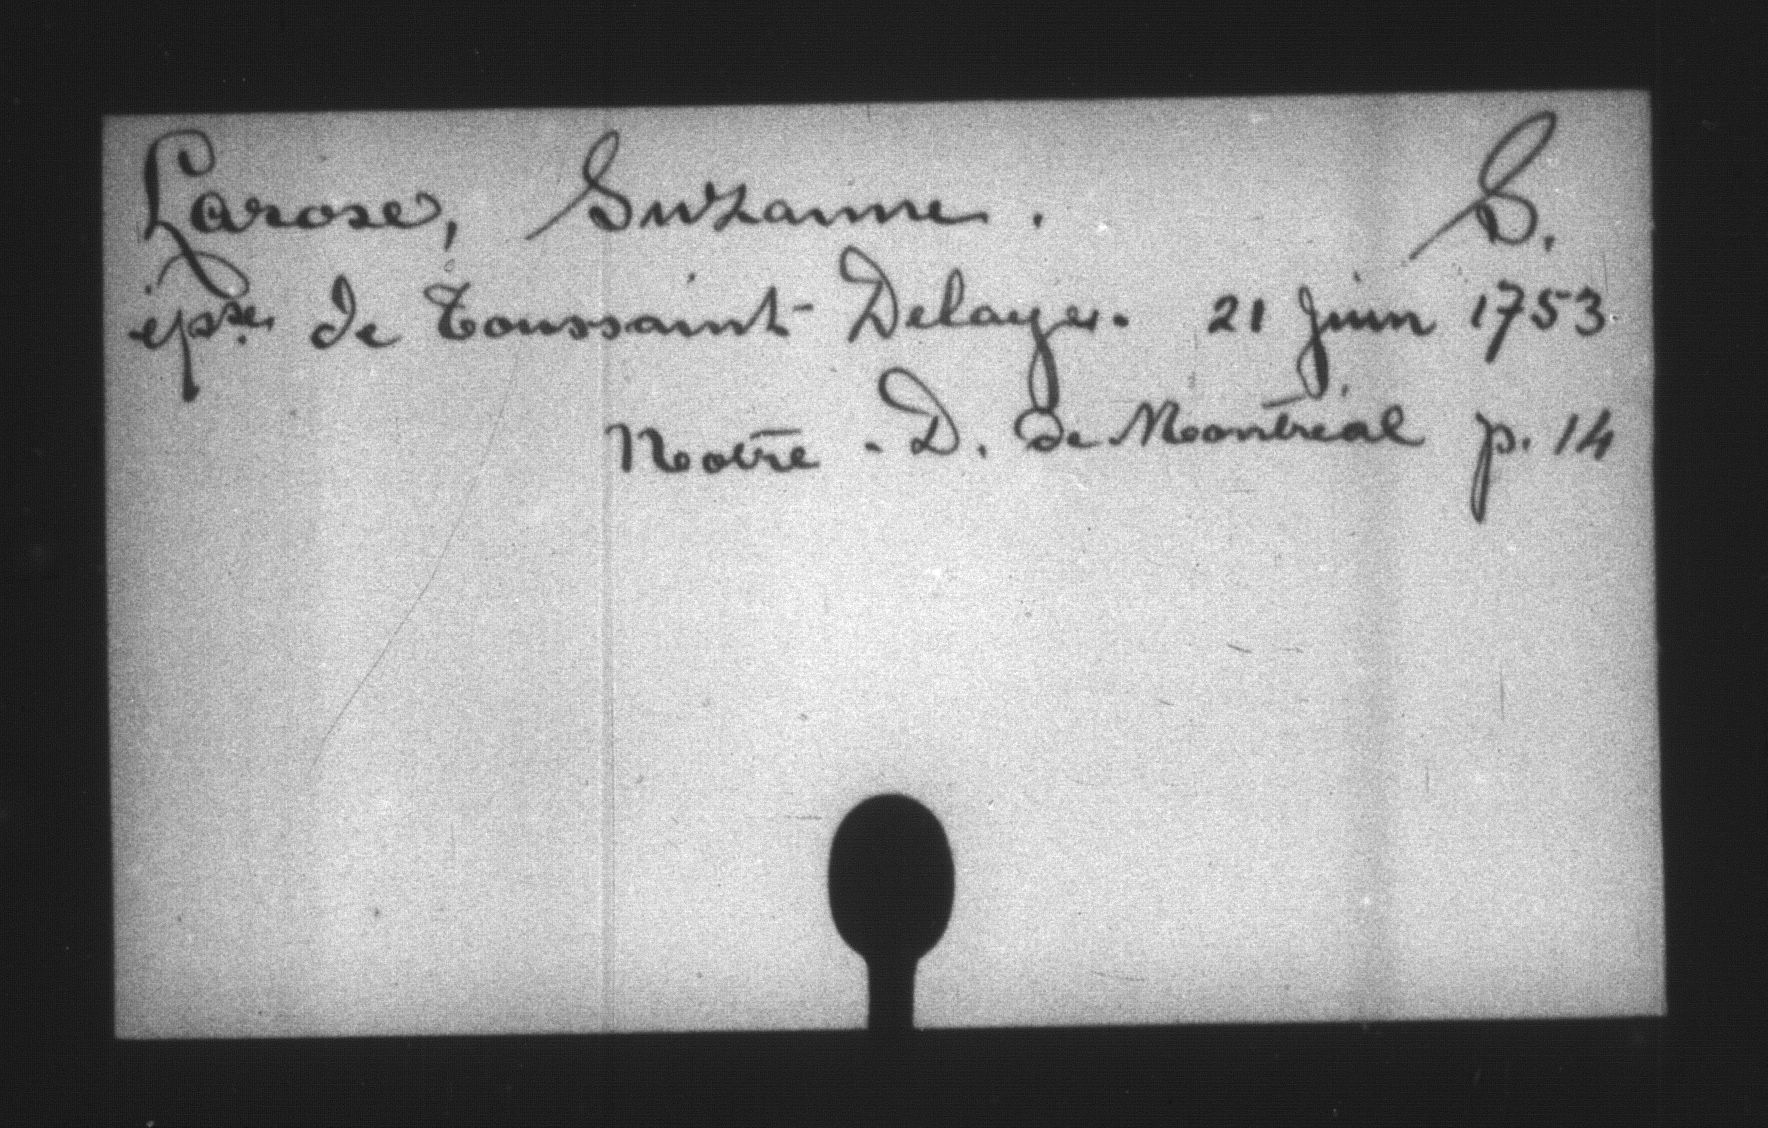 Larose, Suzanne. S.
épse. de Toussaint Delayer. 21 Juin 1753
Notre-D. de Montréal p. 14